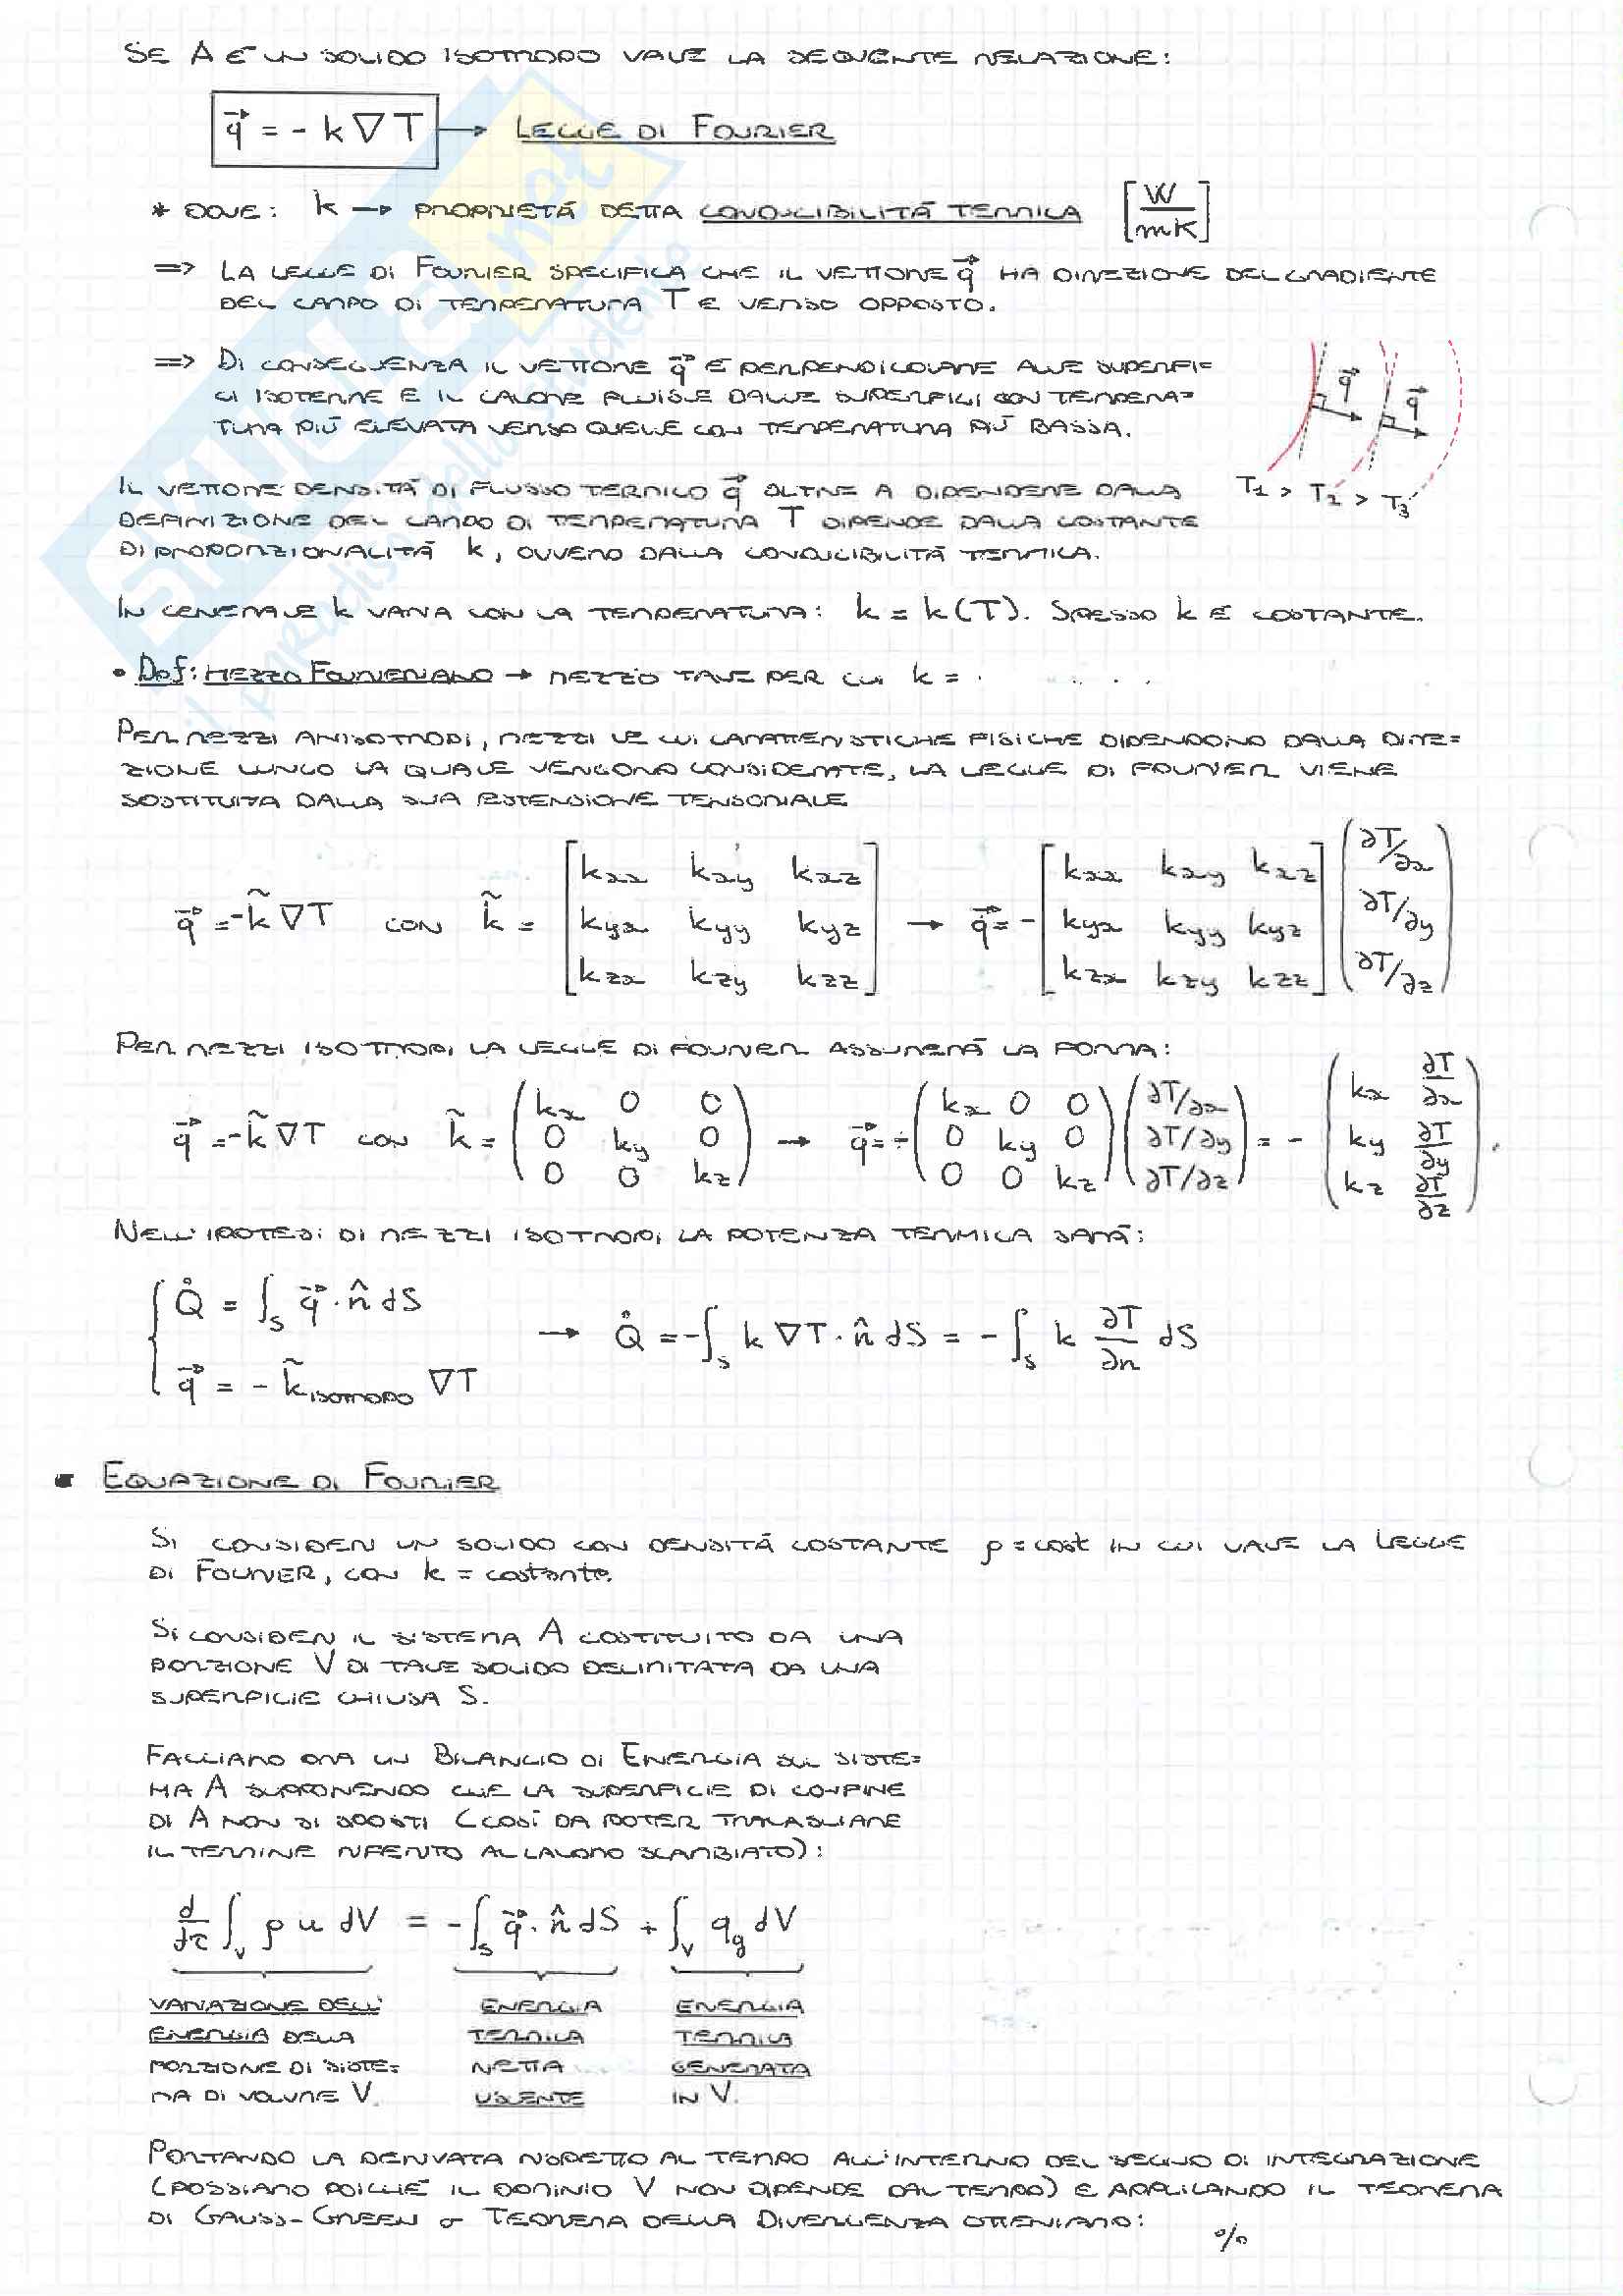 SE A È UN SOLIDO ISOTROPO VALE LA SEGUENTE RELAZIONE:
q⃗ = - k ∇T → LEGGE DI FOURIER
* DOVE: k → PROPRIETÀ DETTA CONDUCIBILITÀ TERMICA [W/mK]
=> LA LEGGE DI FOURIER SPECIFICA CHE IL VETTORE q⃗ HA DIREZIONE DEL GRADIENTE
DEL CAMPO DI TEMPERATURA T E VERSO OPPOSTO.
=> DI CONSEGUENZA IL VETTORE q⃗ È PERPENDICOLARE ALLE SUPERFI=
CI ISOTERME E IL CALORE FLUISCE DALLE SUPERFICI CON TEMPERA=
TURA PIÙ ELEVATA VERSO QUELLE CON TEMPERATURA PIÙ BASSA.
q⃗ q⃗
T1 > T2 > T3
IL VETTORE DENSITÀ DI FLUSSO TERMICO q⃗ OLTRE A DIPENDERE DALLA
DEFINIZIONE DEL CAMPO DI TEMPERATURA T DIPENDE DALLA COSTANTE
DI PROPORZIONALITÀ k, OVVERO DALLA CONDUCIBILITÀ TERMICA.
IN GENERALE k VARIA CON LA TEMPERATURA: k = k(T). SPESSO k È COSTANTE.
• Def: MEZZO FOURIERIANO → MEZZO TALE PER CUI k =
PER MEZZI ANISOTROPI, MEZZI LE CUI CARATTERISTICHE FISICHE DIPENDONO DALLA DIRE=
ZIONE LUNGO LA QUALE VENGONO CONSIDERATE, LA LEGGE DI FOURIER VIENE
SOSTITUITA DALLA SUA ESTENSIONE TENSORIALE
q⃗ = -k̃ ∇T CON k̃ = [kxx kxy kxz; kyx kyy kyz; kzx kzy kzz] → q⃗ = - [kxx kxy kxz; kyx kyy kyz; kzx kzy kzz] (∂T/∂x; ∂T/∂y; ∂T/∂z)
PER MEZZI ISOTROPI LA LEGGE DI FOURIER ASSUMERÀ LA FORMA:
q⃗ = -k̃ ∇T CON k̃ = (kx 0 0; 0 ky 0; 0 0 kz) → q⃗ = - (kx 0 0; 0 ky 0; 0 0 kz) (∂T/∂x; ∂T/∂y; ∂T/∂z) = - (kx ∂T/∂x; ky ∂T/∂y; kz ∂T/∂z).
NELL'IPOTESI DI MEZZI ISOTROPI LA POTENZA TERMICA SARÀ:
Q̊ = ∫S q⃗ · n̂ dS
→ Q̊ = -∫S k ∇T · n̂ dS = - ∫S k ∂T/∂n dS
q⃗ = - k̃ISOTROPO ∇T
EQUAZIONE DI FOURIER
SI CONSIDERI UN SOLIDO CON DENSITÀ COSTANTE ρ = cost IN CUI VALE LA LEGGE
DI FOURIER, CON k = costante.
SI CONSIDERI IL SISTEMA A COSTITUITO DA UNA
PORZIONE V DI TALE SOLIDO DELIMITATA DA UNA
SUPERFICIE CHIUSA S.
FACCIAMO ORA UN BILANCIO DI ENERGIA SUL SISTE=
MA A SUPPONENDO CHE LA SUPERFICIE DI CONFINE
DI A NON SI SPOSTI (COSÌ DA POTER TRALASCIARE
IL TERMINE RIFERITO AL LAVORO SCAMBIATO):
d/dτ ∫V ρ u dV = -∫S q⃗ · n̂ dS + ∫V qg dV
VARIAZIONE DELL' ENERGIA ENERGIA
ENERGIA DELLA TERMICA TERMICA
PORZIONE DI SISTE= NETTA GENERATA
MA DI VOLUME V. USCENTE IN V.
PORTANDO LA DERIVATA RISPETTO AL TEMPO ALL'INTERNO DEL SEGNO DI INTEGRAZIONE
(POSSIAMO POICHÉ IL DOMINIO V NON DIPENDE DAL TEMPO) E APPLICANDO IL TEOREMA
DI GAUSS-GREEN o TEOREMA DELLA DIVERGENZA OTTENIAMO:
%